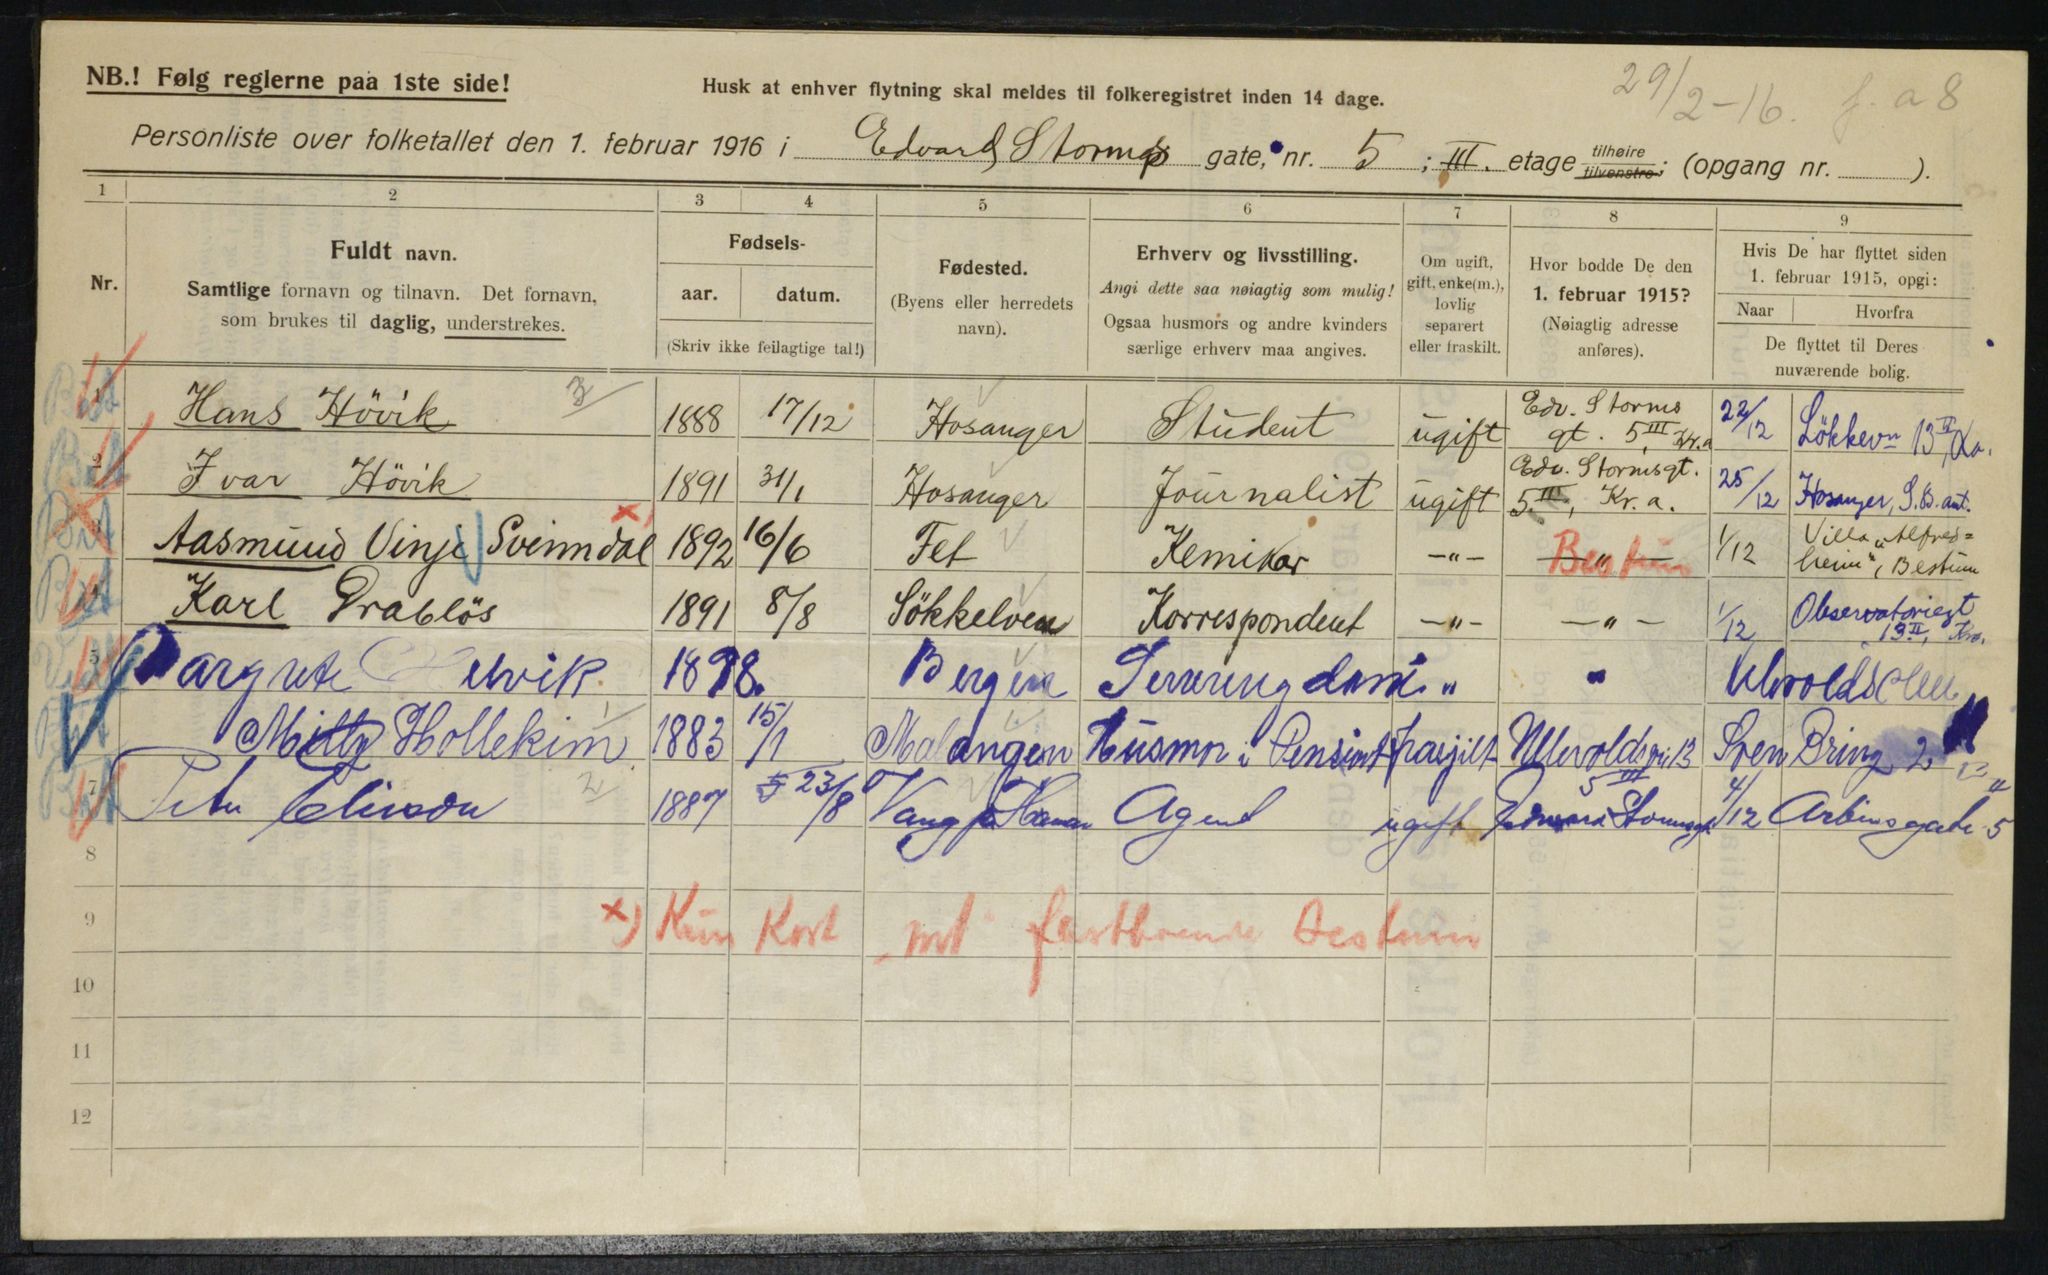 29/2-16. f. a 8
NB.! Følg reglerne paa 1ste side!
Husk at enhver flytning skal meldes til folkeregistret inden 14 dage.
Personliste over folketallet den 1. februar 1916 i Edvard Storms gate, nr. 5; III. etage tilhøire tilvenstre; (opgang nr. ).
1 2 3 4 5 6 7 8 9
Nr.
Fuldt navn.
Samtlige fornavn og tilnavn. Det fornavn,
som brukes til daglig, understrekes.
Fødsels-
aar. datum.
(Skriv ikke feilagtige tal!)
Fødested.
(Byens eller herredets
navn).
Erhverv og livsstilling.
Angi dette saa nøiagtig som mulig!
Ogsaa husmors og andre kvinders
særlige erhverv maa angives.
Om ugift,
gift, enke(m.),
lovlig
separert
eller fraskilt.
Hvor bodde De den
1. februar 1915?
(Nøiagtig adresse
anføres).
Hvis De har flyttet siden
1. februar 1915, opgi:
Naar Hvorfra
De flyttet til Deres
nuværende bolig.
1 Hans Hövik 1888 17/12 Hosanger Student ugift Edv. Storms gt. 5 III Kr.a 22/12 Lökkevn 13
2 Ivar Hövik 1891 31/1 Hosanger Journalist ugift Edv. Stormsgt. 5 III, Kr.a. 25/12 Hosanger, S.B. amt.
3 Aasmund Vinje Svinndal x) 1892 16/6 Fet Kemiker -"- -"- Bestum 1/12 Villa „Alfred=heim", Bestum
4 Karl Drabløs 1891 8/8 Sökkelven Korrespondent -"- -"- 1/12 Observatoriegt 13 II, Kra.
5 Margrete 1898. Bergen Serveringsdame " "
Mitty Hollekim 1883 15/1 Malangen Husmor i Pensionat fraskilt Ullevoldsvei 13 Sven Bring 2
7 Peter 1887 23/8 Vang Agent ugift Edvard Stormsgt 5 III 4/12 Arbinsgate 5
8
9 x) Kun Kort mt fastboende Bestum
10
11
12